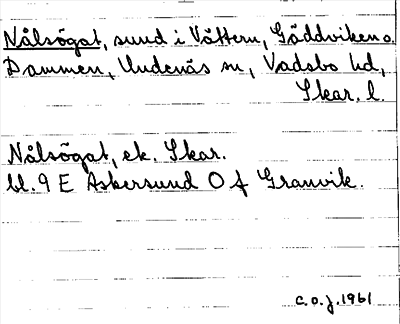 Nålsögat, sund i Vättern, Gäddviken o.
Dammen, Undenäs sn, Vadsbo hd,
Skar. l.
Nålsögat, ek. Skar.
bl. 9 E Askersund O f Granvik.
C.O.J. 1961